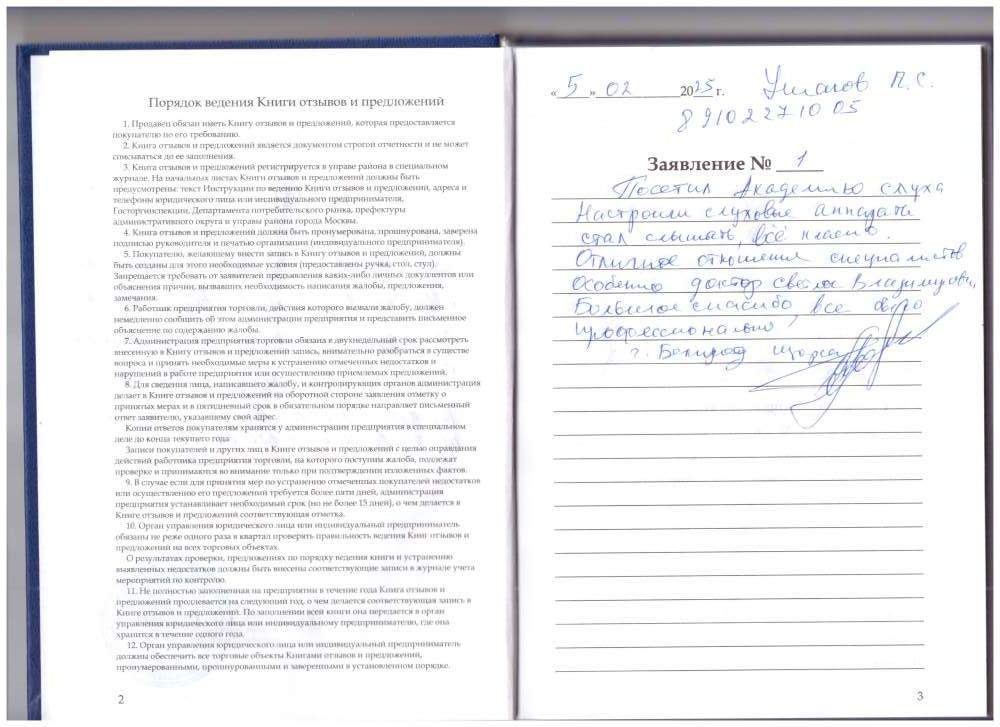 Порядок ведения Книги отзывов и предложений
1. Продавец обязан иметь Книгу отзывов и предложений, которая предоставляется
покупателю по его требованию.
2. Книга отзывов и предложений является документом строгой отчетности и не может
списываться до ее заполнения.
3. Книга отзывов и предложений регистрируется в управе района в специальном
журнале. На начальных листах Книги отзывов и предложений должны быть
предусмотрены: текст Инструкции по ведению Книги отзывов и предложений, адреса и
телефоны юридического лица или индивидуального предпринимателя,
Госторгинспекции, Департамента потребительского рынка, префектуры
административного округа и управы района города Москвы.
4. Книга отзывов и предложений должна быть пронумерована, прошнурована, заверена
подписью руководителя и печатью организации (индивидуального предпринимателя).
5. Покупателю, желающему внести запись в Книгу отзывов и предложений, должны
быть созданы для этого необходимые условия (предоставлены ручка, стол, стул).
Запрещается требовать от заявителей предъявления каких-либо личных документов или
объяснения причин, вызвавших необходимость написания жалобы, предложения,
замечания.
6. Работник предприятия торговли, действия которого вызвали жалобу, должен
немедленно сообщить об этом администрации предприятия и представить письменное
объяснение по содержанию жалобы.
7. Администрация предприятия торговли обязана в двухнедельный срок рассмотреть
внесенную в Книгу отзывов и предложений запись, внимательно разобраться в существе
вопроса и принять необходимые меры к устранению отмеченных недостатков и
нарушений в работе предприятия или осуществлению приемлемых предложений.
8. Для сведения лица, написавшего жалобу, и контролирующих органов администрация
делает в Книге отзывов и предложений на оборотной стороне заявления отметку о
принятых мерах и в пятидневный срок в обязательном порядке направляет письменный
ответ заявителю, указавшему свой адрес.
Копии ответов покупателям хранятся у администрации предприятия в специальном
деле до конца текущего года
Записи покупателей и других лиц в Книге отзывов и предложений с целью оправдания
действий работника предприятия торговли, на которого поступила жалоба, подлежат
проверке и принимаются во внимание только при подтверждении изложенных фактов.
9. В случае если для принятия мер по устранению отмеченных покупателей недостатков
или осуществлению его предложений требуется более пяти дней, администрация
предприятия устанавливает необходимый срок (но не более 15 дней), о чем делается в
Книге отзывов и предложений соответствующая отметка.
10. Орган управления юридического лица или индивидуальный предприниматель
обязаны не реже одного раза в квартал проверять правильность ведения Книг отзывов и
предложений на всех торговых объектах.
О результатах проверки, предложениях по порядку ведения книги и устранению
выявленных недостатков должны быть внесены соответствующие записи в журнале учета
мероприятий по контролю.
11. Не полностью заполненная на предприятии в течение года Книга отзывов и
предложений продлевается на следующий год, о чем делается соответствующая запись в
Книге отзывов и предложений. По заполнении всей книги она передается в орган
управления юридического лица или индивидуальному предпринимателю, где она
хранится в течение одного года.
12. Орган управления юридического лица или индивидуальный предприниматель
должны обеспечить все торговые объекты Книгами отзывов и предложений,
пронумерованными, прошнурованными и заверенными в установленном порядке.
2
«5» 02 2025 г. Ушаков П.С.
89102271005
Заявление № 1
Посетил Академию слуха
Настроили слуховые аппараты
стал слышать, всё класно.
Отличное отношения специалистов
Особенно доктор Владимировна,
Большое спасибо, все
профессионально
г.
3